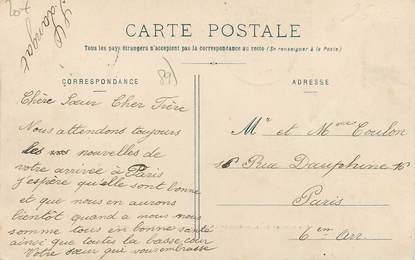 207
CARTE POSTALE
Tous les pays étrangers n'acceptent pas la correspondance au recto (En renseigner à la Poste)
CORRESPONDANCE
89)
ADRESSE
Chère Sœur Cher Frère
Nous attendons toujours
les nouvelles de
votre arrivée à Paris
j'espère qu'elle sont bonne
et que nous en aurons
bientôt quand a nous nous
somme tous en bonne santé
ainsi que toutes la basse cour
Votre sœur qui vous embrasse
Mr et Mme Coulon
16 Rue Dauphine 16
Paris
6em Arr.